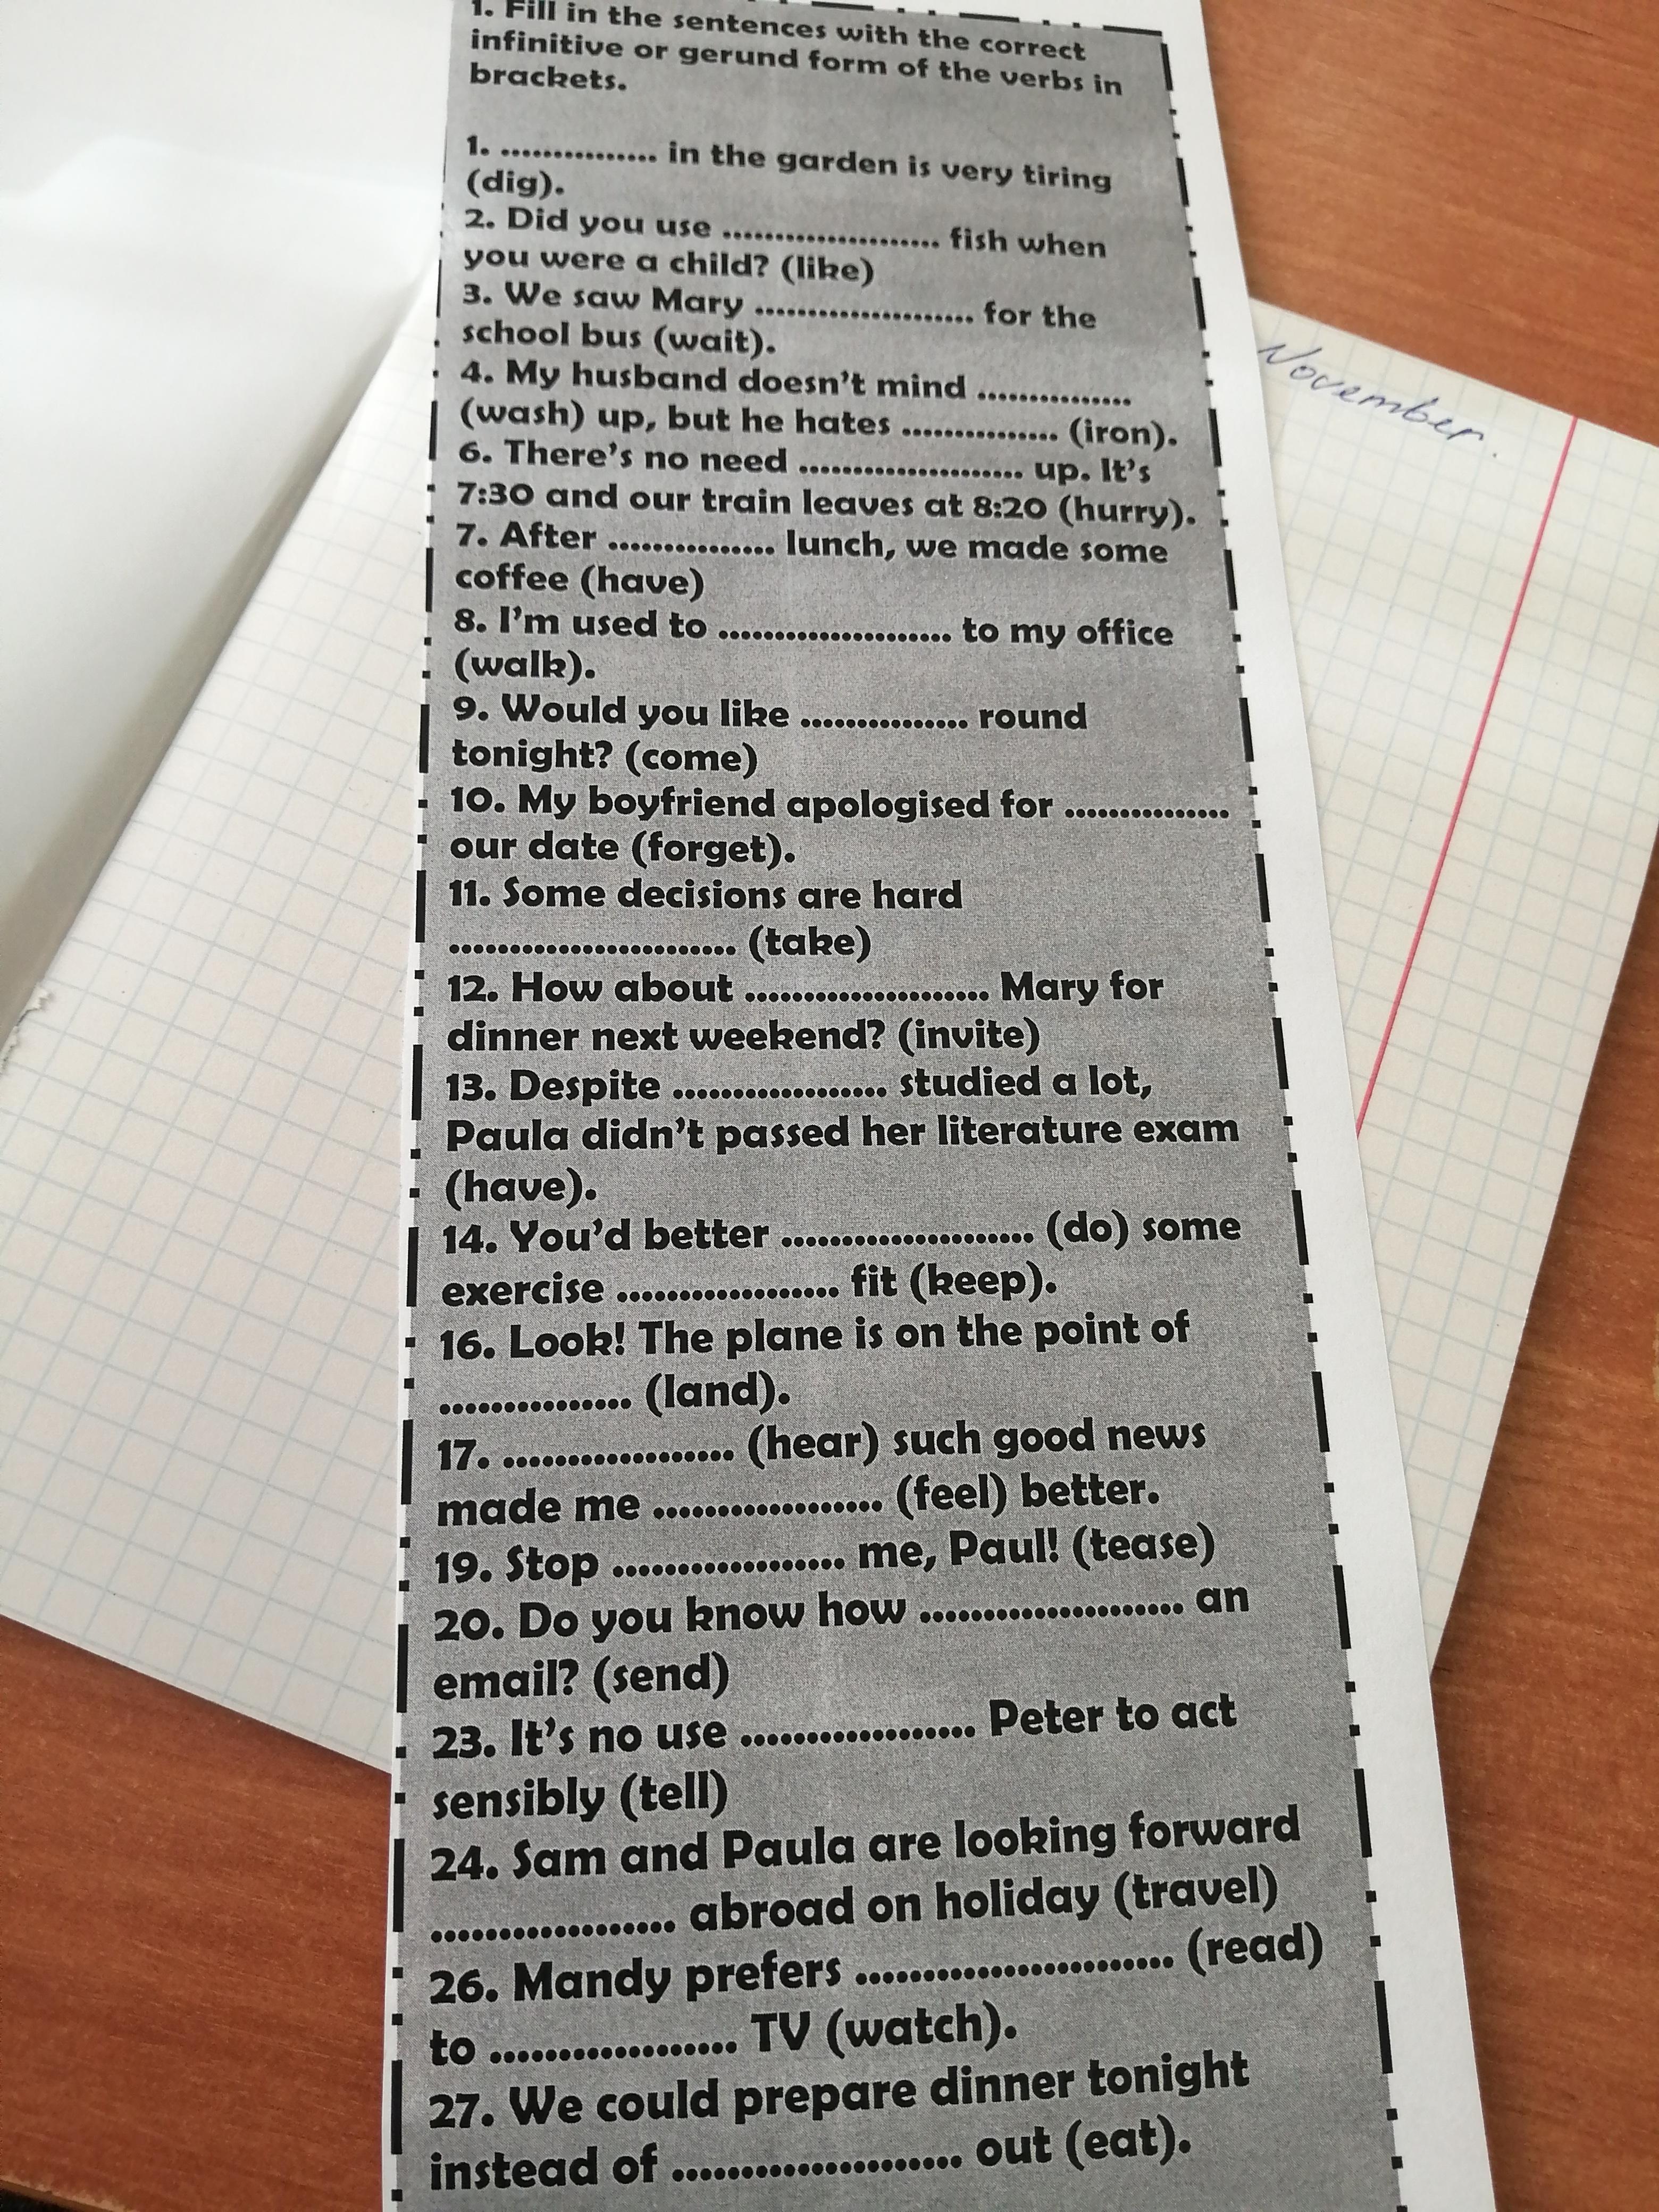 1. Fill in the sentences with the correct
infinitive or gerund form of the verbs in
brackets.
1. ............... in the garden is very tiring
(dig).
2. Did you use ..................... fish when
you were a child? (like)
3. We saw Mary ..................... for the
school bus (wait).
4. My husband doesn't mind ...............
(wash) up, but he hates ............... (iron).
6. There's no need ..................... up. It's
7:30 and our train leaves at 8:20 (hurry).
7. After ............... lunch, we made some
coffee (have)
8. I'm used to ..................... to my office
(walk).
9. Would you like ............... round
tonight? (come)
10. My boyfriend apologised for ...............
our date (forget).
11. Some decisions are hard
........................ (take)
12. How about ..................... Mary for
dinner next weekend? (invite)
13. Despite .................. studied a lot,
Paula didn't passed her literature exam
(have).
14. You'd better ..................... (do) some
exercise .................. fit (keep).
16. Look! The plane is on the point of
............... (land).
17. .................. (hear) such good news
made me .................. (feel) better.
19. Stop .................. me, Paul! (tease)
20. Do you know how ..................... an
email? (send)
23. It's no use .................. Peter to act
sensibly (tell)
24. Sam and Paula are looking forward
.................. abroad on holiday (travel)
26. Mandy prefers ........................ (read)
to .................. TV (watch).
27. We could prepare dinner tonight
instead of ..................... out (eat).
November.